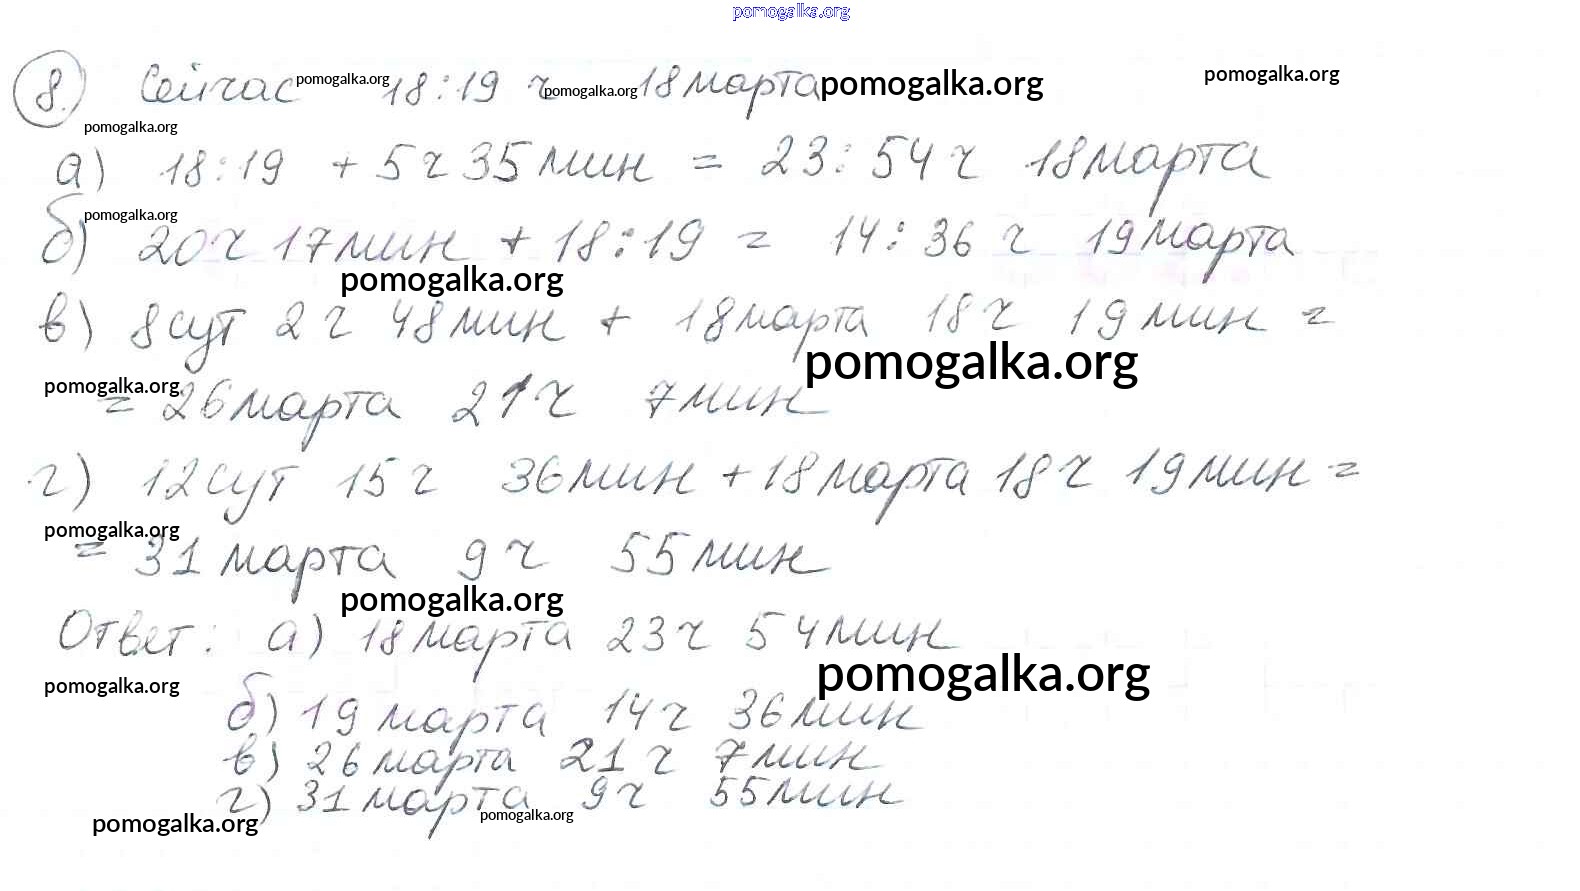 pomogalka.org
8. Сейчас pomogalka.org 18:19 ч pomogalka.org 18 марта pomogalka.org pomogalka.org
pomogalka.org
а) 18:19 + 5ч 35мин = 23:54ч 18марта
pomogalka.org
б) 20ч 17мин + 18:19 = 14:36 ч 19марта
pomogalka.org
в) 8сут 2 ч 48мин + 18марта 18ч 19мин =
pomogalka.org
pomogalka.org
= 26марта 21ч 7мин
г) 12сут 15ч 36мин + 18марта 18ч 19мин =
pomogalka.org
= 31 марта 9ч 55мин
pomogalka.org
Ответ: а) 18марта 23ч 54мин
pomogalka.org
pomogalka.org
б) 19 марта 14ч 36мин
в) 26марта 21ч 7мин
г) 31марта 9ч 55мин
pomogalka.org
pomogalka.org